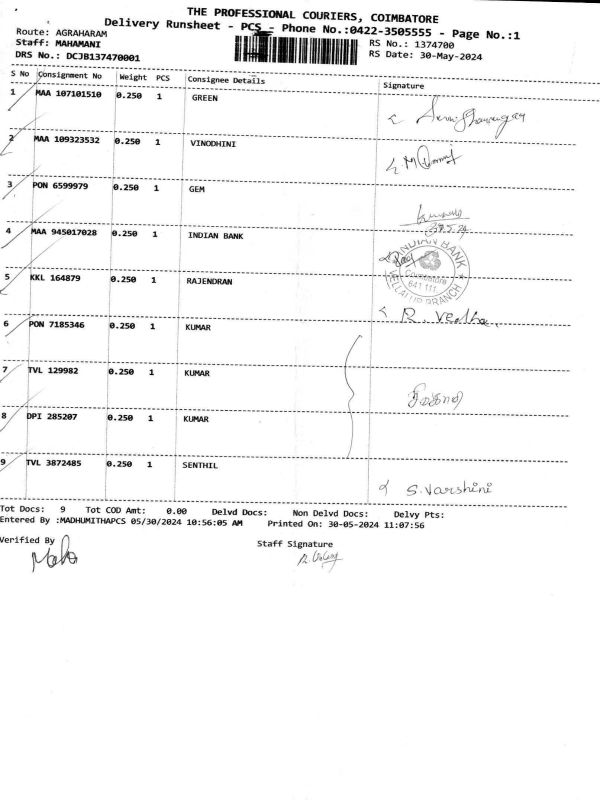 THE PROFESSIONAL COURIERS, COIMBATORE
Delivery Runsheet - PCS - Phone No.:0422-3505555 - Page No.:1
Route: AGRAHARAM
RS No.: 1374700
Staff: MAHAMANI
RS Date: 30-May-2024
DRS No.: DCJB137470001
S No Consignment No Weight PCS Consignee Details Signature
1 MAA 107101510 0.250 1 GREEN
2 MAA 109323532 0.250 1 VINODHINI
3 PON 6599979 0.250 1 GEM
4 MAA 945017028 0.250 1 INDIAN BANK
INDIAN BANK
Coimbatore
641 111
BRANCH
5 KKL 164879 0.250 1 RAJENDRAN
R. Vedha
6 PON 7185346 0.250 1 KUMAR
7 TVL 129982 0.250 1 KUMAR
8 DPI 285207 0.250 1 KUMAR
9 TVL 3872485 0.250 1 SENTHIL
S. Varshini
Tot Docs: 9 Tot COD Amt: 0.00 Delvd Docs: Non Delvd Docs: Delvy Pts:
Entered By :MADHUMITHAPCS 05/30/2024 10:56:05 AM Printed On: 30-05-2024 11:07:56
Verified By
Staff Signature